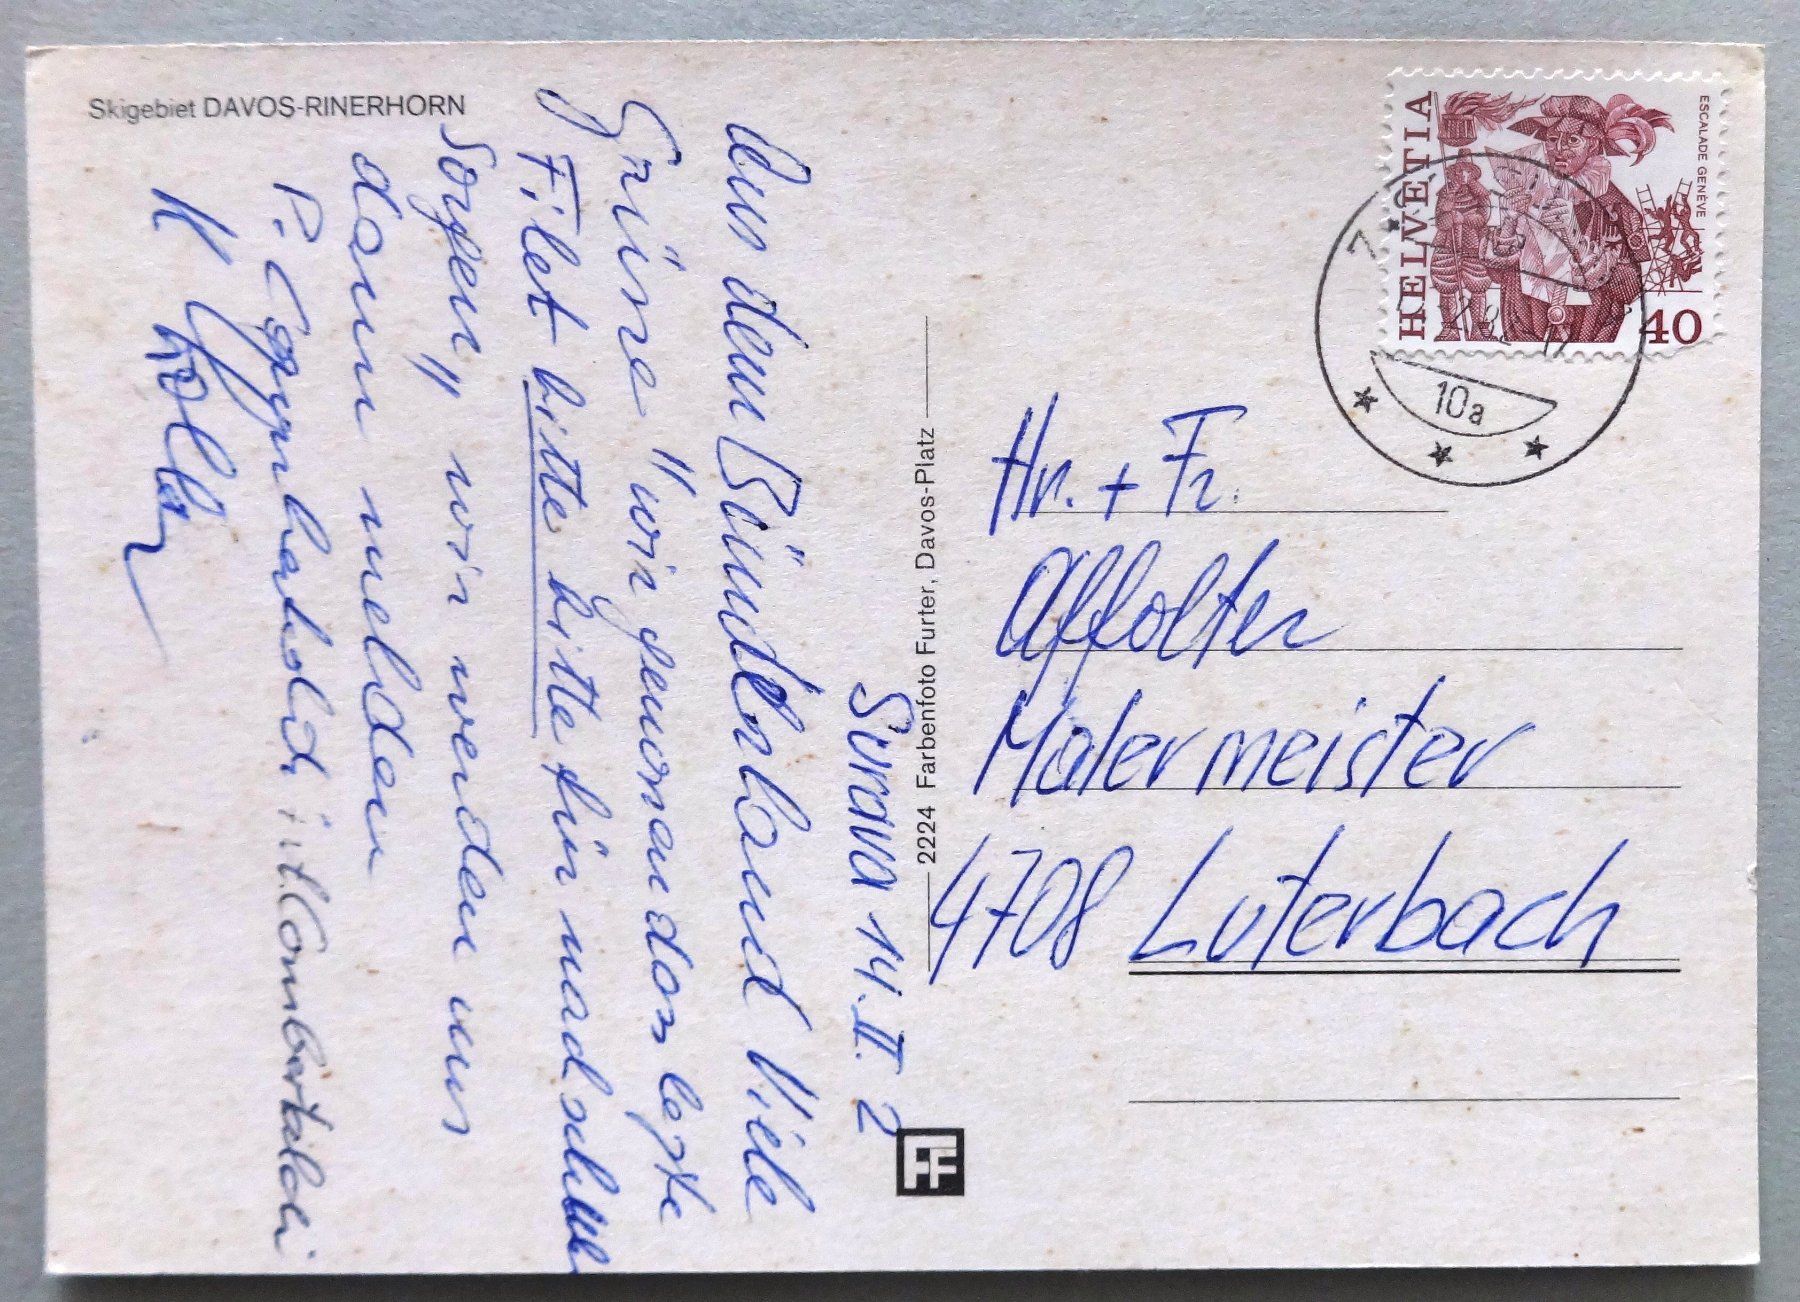 Skigebiet DAVOS-RINERHORN
HELVETIA
ESCALADE GENÈVE
40
7
10a
Surava 14. II. 2
Aus dem Bündenland Viele
Grüsse "wir genomen das legste
Filet bitte bitte für uns
Sorgen," wir werden uns
dann melden
P.
K Koller
2224 Farbenfoto Furter, Davos-Platz
FF
Hr. + Fr.
Affolter
Malermeister
4708 Luterbach